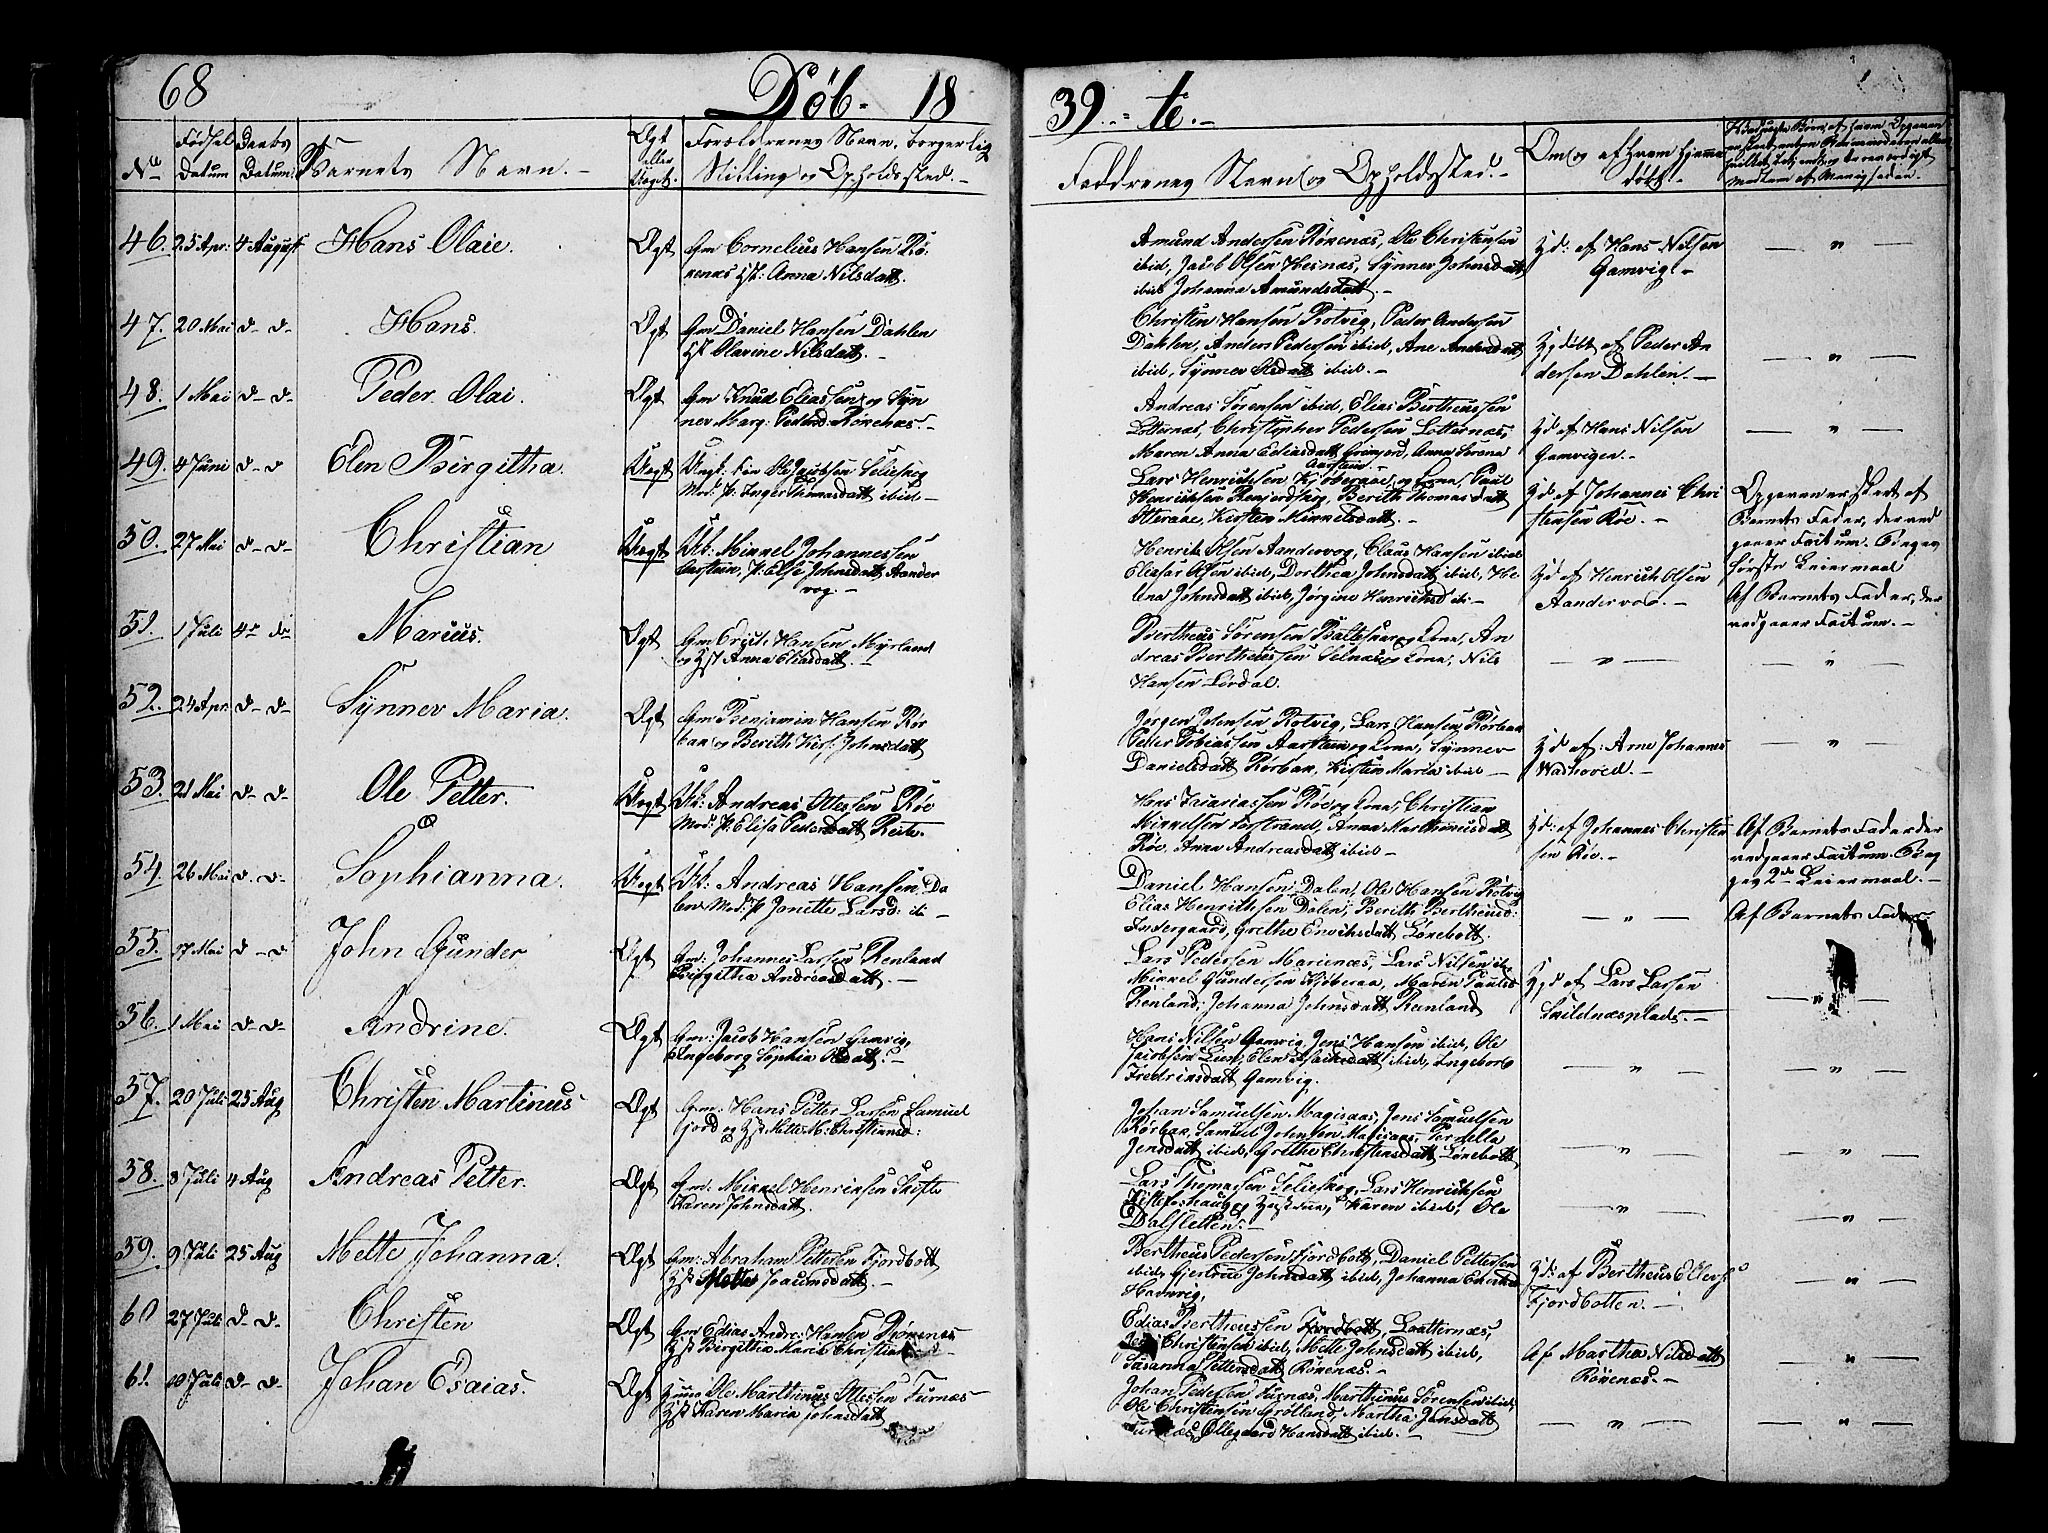 68 Døb- 18 39.-- te.-
No
Fødsel Datum
Daabs Datum:
Barnets Navn.-
Ægt eller Uægt.
Forældrenes Navn, borgerlig Stilling og Opholdssted.-
Faddrenes Navn og Opholdssted.-
Om og af hvem hjemme døbt.-
46. 25 Apr: 4 August Hans Olaie. Ægt
Gm Cornelius Hansen Rø:
kenæs Hst: Anna Nilsdatt.
Amund Andersen Rökenæs, Ole Christensen
ibid, Jacob Olsen Hesnæs, Synnev Johnsdatt
ibid Johanna Amundsdatt.-
Hd: af Hans Nilsen
Gamvig.-
— " —
47. 20 Mai d- d- Hans. Ægt
Gm Daniel Hansen Dahlen
Hst Olavine Nilsdatt.-
Christen Hansen Rotvig, Peder Andersen
Dahlen, Anders Pedersen ibid, Ane Andersdatt
ibid, Synnev Olsdatt ibid.-
Hjdøbt af Peder An
dersen Dahlen.-
— " —
48. 1 Mai d- d- Peder Olai. Ægt
Gm Knud Eliassen og Syn
nev Marg: Pedersd: Rökenæs-
Andreas Sørensen ibid, Elias Bertheussen
Lotternæs, Christopher Pedersen Lotternæs,
Maren Anna Eliasdatt
Anna Serena
Hd af Hans Nilsen
Gamvigen.-
— " —
49. 4 Juni d- d Elen Birgitha. Uægt
Ungk: Ole Jacobsen Selieskog
Mod: P: Inger Thomasdatt ibid-
Lars Henrichsen Kjøberaae, og Kona, Paul
Henrichsen Renjordskog, Berith Thomasdatt
Otteraae, Kirsten Mikkelsdatt.-
Hd af Johannes Chri
stensen Røe.-
Opgaven er skeet af
Barnets Fader, der ved
gaaer Factum. Begges
første Leiermaal
50. 27 Mai d- d- Christian Uægt
Uk: Mikkel Johannessen
Aarstein, P: Else Johnsdatt Aander
vog.-
Henrik Olsen Aandervog, Claus Hansen ibid
Eliesar Olsen ibid, Dorthea Johnsdatt ibid, He
lena Johnsdatt ibid, Jørgine Henrichsd ib-
Hd af Henrich Olsen
Aandervog.-
Af Barnets Fader, der
vedgaaer Factum.-
51. 1 Juli 4de do Marius. Ægt
Gm Erich Hansen Myrland
og Hst Anna Eliasdatt.-
Bertheus Sørensen Baltestad og Kona, An
dreas Bertheussen Selnæs og Kona, Nils
Hansen Lørdal.
— " —
— " —
52. 24 Apr: d- d- Synnev Maria. Ægt
Gm Benjamin Hansen Rør
bak og Berith Kirs: Johnsdatt
Jørgen Jensen Rotvig, Lars Hansen Rørbak
Peder Tobiassen Aarstein og Kona, Synnev
Danielsdatt Rørbak, Kirsten Maria ibid-
Hd af: Arne Johannes
Vadhoved.-
— " —
53. 21 Mai d- d- Ole Petter. Uægt
Uk: Andreas Ottesen Røe
Mod: P: Elisa Pedersdatt Reite.
Hans Zacariassen Røe og Kona, Christian
Mikkelsen Forstrand, Anna Mar: Thomasdatt
Røe, Anna Andreasdatt ibid-
Hd: af Johannes Christen
sen Røe.-
Af Barnets Fader der
vedgaaer Factum. Beg
ges 2det Leiermaal.-
54. 26 Mai d- d- Sophianna. Uægt
Uk: Andreas Hansen Da
len Mod: P Janette Larsd: ib-
Daniel Hansen Dalen, Ole Hansen Rotvig
Elias Henrichsen Dalen, Berith Bertheusd:
Indergaard, Grethe Erichsdatt Lønebott.
— " —
Af Barnets Fader
55. 17 Mai d-d John Gunder Ægt
Gm: Johannes Larsen Renland
Birgitha Andreasdatt.-
Lars Pedersen Marienæs, Lars Nilsen ib,
Mikkel Gundersen Kjøberaa, Maren Paulsd
Renland, Johanna Johnsdatt Renland
Hjd af Lars Larsen
Skildnæsplads.-
— " —
56. 1 Mai d- d- Andrine. Ægt
Gm: Jacob Hansen Gamvig,
Engeborg Sophia Olsdatt.-
Hans Nilsen Gamvig, Jens Hansen ibid, Ole
Jacobsen Lien, Elen Isachsdatt ibid, Ingeborg
Fredriksdatt Gamvig.
— " —
— " —
57. 20 Juli 25 Aug Christen Martinus Ægt
Gm: Hans Petter Larsen Samuel
fjord og Hst Mette M: Christiansd:
Johan Samuelsen Magisaas, Jens Samuelsen
Rørbak, Samuel Johnsen Magisaas, Pernella
Jensdatt ibid, Grethe Christensdatt Lønebott
— " —
— " —
58. 8 Juli 4 Aug Andreas Petter. Ægt
Gm: Mikkel Henriksen Skifte
Karen Johnsdatt.
Lars Thomassen Selieskog, Lars Henrichsen
Kistefoshaug og Hustrue, Karen ibid, Ole
Dalsletten.-
— " —
— " —
59. 9 Juli 25 Aug Mette Johanna. Ægt
Gm: Abraham Pettersen Fjordbott
Hst Mette Joachimsdatt.-
Bertheus Pedersen Fjordbott, Daniel Pettersen
ibid, Gjertrue Johnsdatt ibid, Johanna
Havnvig,
Hd: af Bertheus Ellevs:
Fjordbotten.-
— " —
60 27 Juli d- d- Christen Ægt
Gm Edias Andreas Hansen Rökenæs
Hst Birgitha Maria
Edias Bertheussen Fjordbott, Laatternæs,
Christensen ibid, Mette Johnsdatt ibid,
Susanna Pettersdatt Rökenæs.-
Af Martha Nilsdatt
Rökenæs.-
— " —
61. 10 Juli d- d- Johan Esaias. Ægt
Huusm Ole Marthinus Ottesen Furnæs-
Hst Karen Maria Johnsdatt
Johan Pedersen Furnæs, Marthinus Sørensen ibid
Ole Christensen Grølland, Martha Jensdatt
Furnæs, Ollegaard Hansdatt ibid.-
— " —
— " —